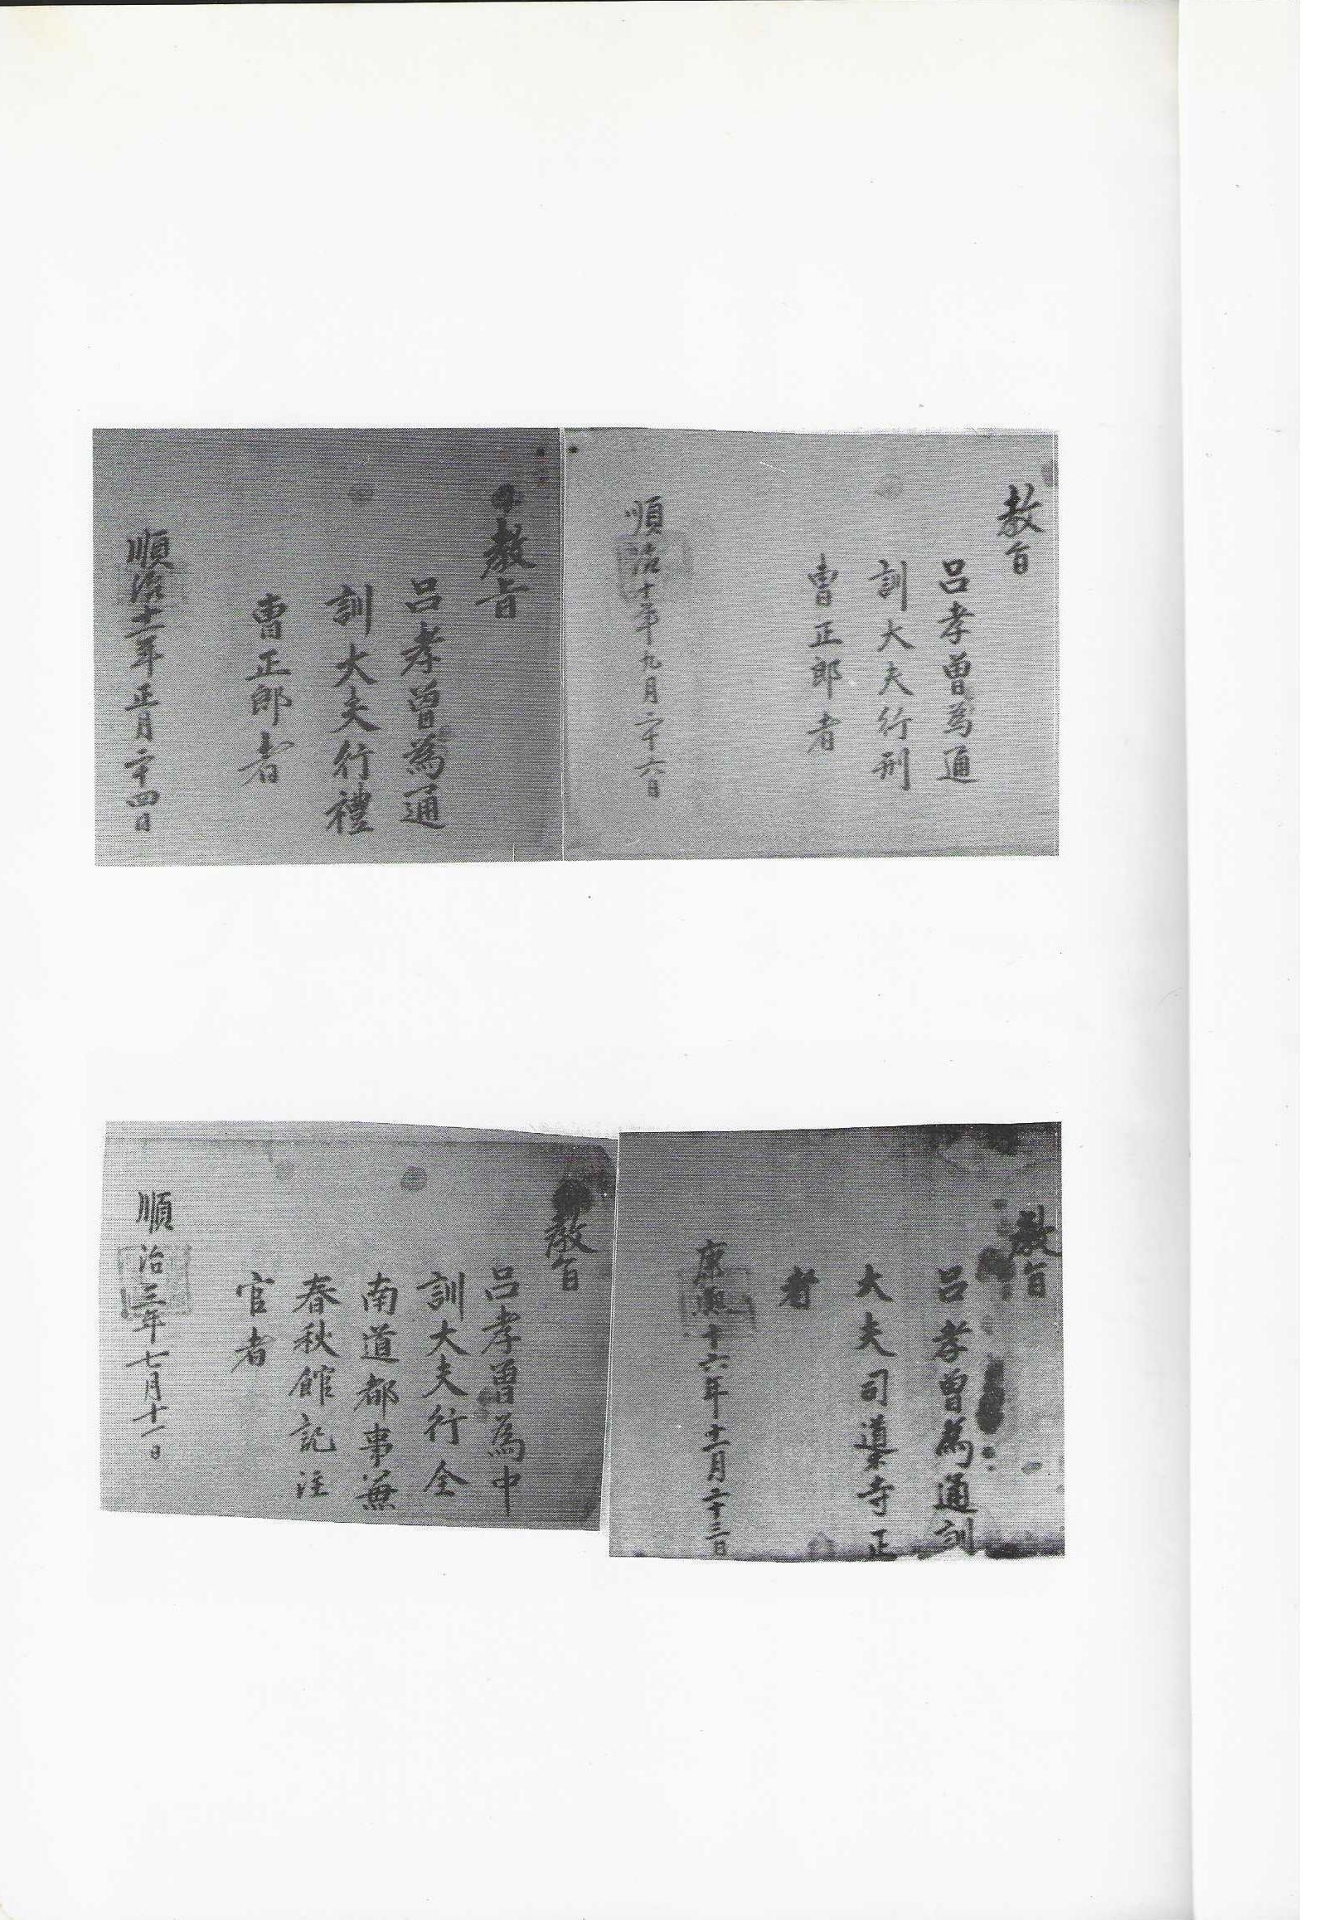 教旨
呂孝曾為通
訓大夫行刑
曹正郎者
順治十年九月二十六日
教旨
呂孝曾為通
訓大夫行禮
曹正郎者
順治十一年正月二十四日
教旨
呂孝曾為通訓
大夫司䆃寺正
者
康熙十六年十二月二十三日
教旨
呂孝曾為中
訓大夫行全
南道都事兼
春秋館記注
官者
順治三年七月十一日